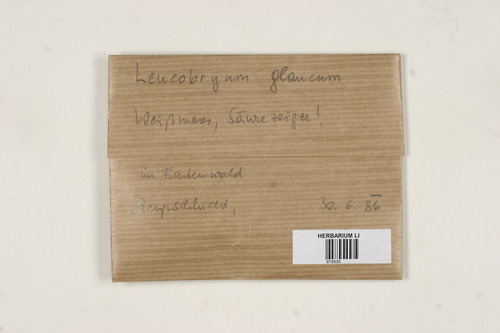 Leucobryum glaucum
Weißmoos, Säurezeiger!
im Fichtenwald
30. 6. 86
HERBARIUM LI